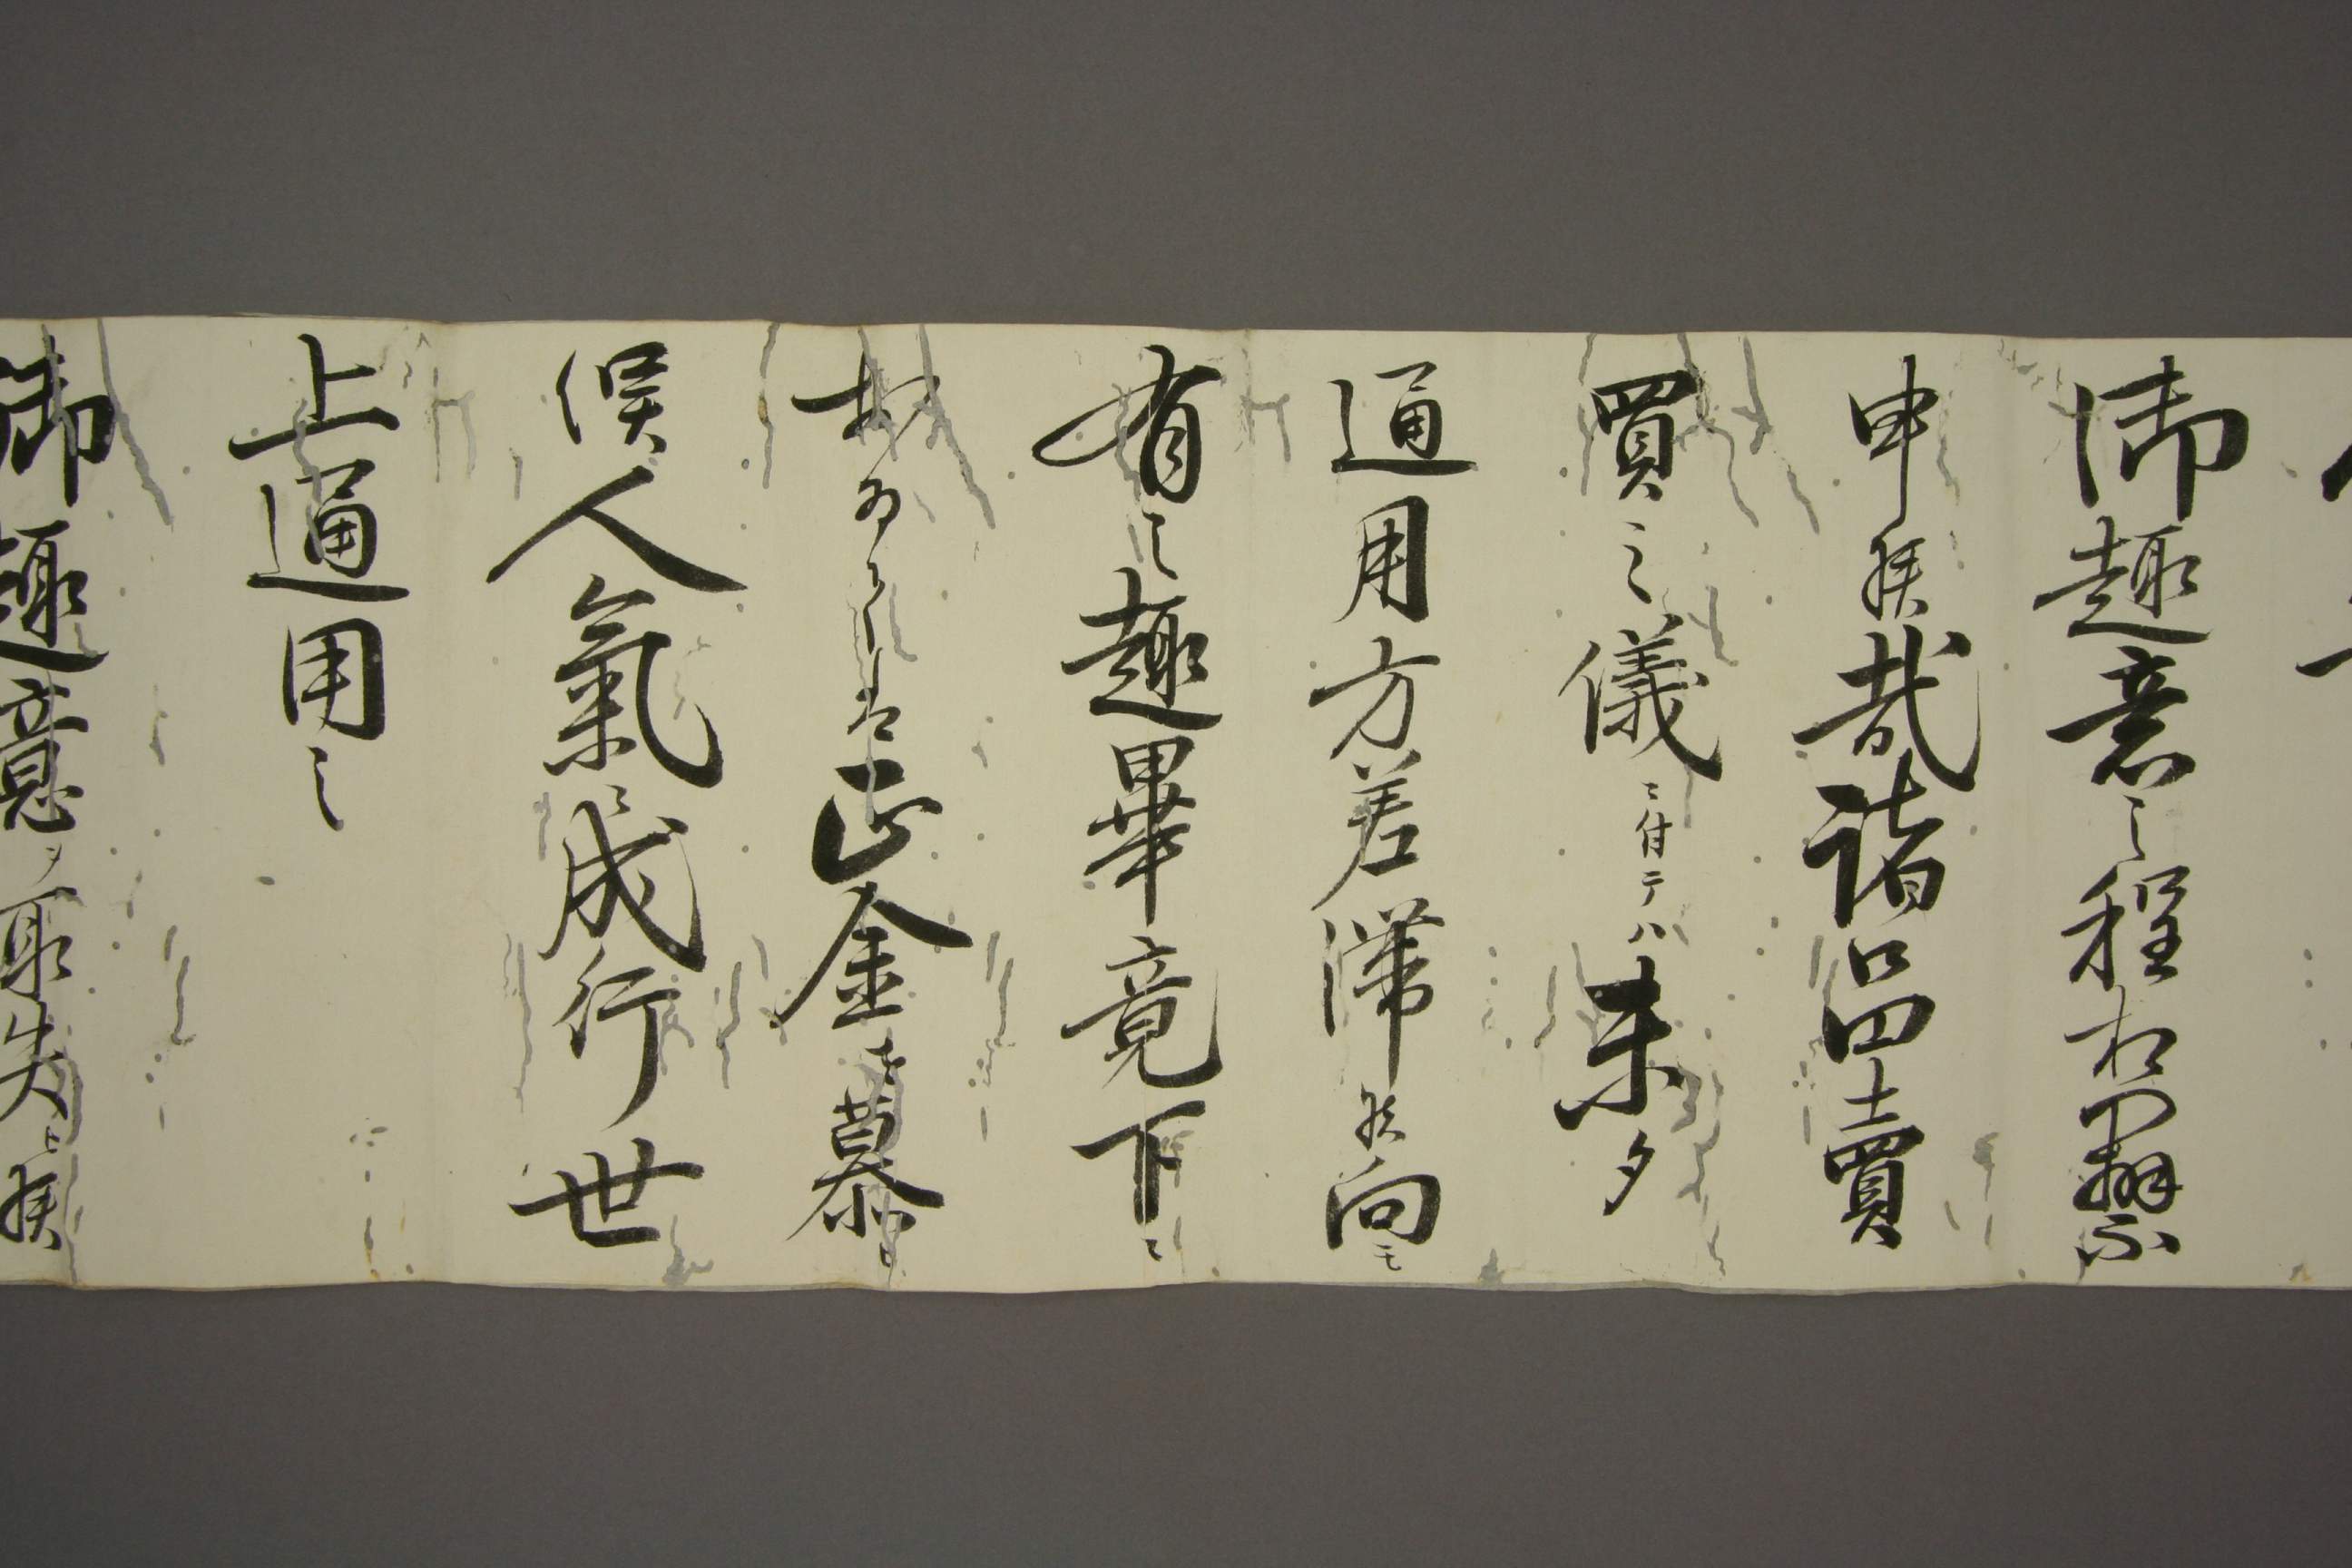 御趣意之程相辨不
申候哉諸品賣
買之儀ニ付テハ未タ
通用方差滞候向モ
有之趣畢竟下ニ
於
正金を慕ひ
候人氣ニ成行世
上通用之
御趣意ヲ取失ヒ候